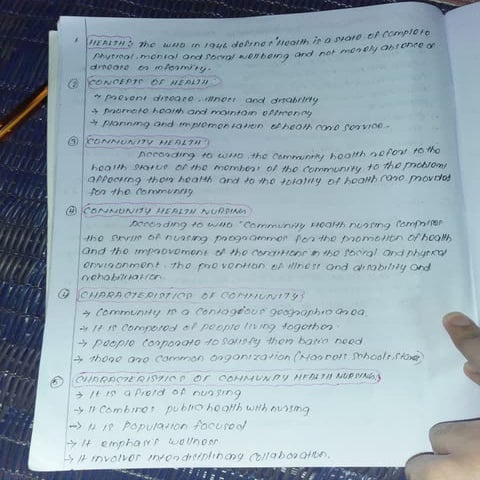 1. HEALTH: The WHO in 1946 defines "Health is a state of complete
physical, mental and social wellbeing and not merely absence of
disease or infirmity.
② CONCEPTS OF HEALTH:
→ prevent disease, illness and disability
→ promote health and maintain efficency
→ planning and implementation of health care service.
③ COMMUNITY HEALTH:
According to WHO, the community health refers to the
health status of the members of the community, to the problems
affecting their health and to the totality of health care provided
for the community
④ COMMUNITY HEALTH NURSING
According to WHO "Community Health nursing comprises
the skills of nursing programmes for the promotion of health
and the improvement of the conditions in the social and physical
environment, the prevention of illness and disability and
rehabilitation.
④ CHARACTERISTICS OF COMMUNITY:
→ Community is a contagious geographic area.
→ It is composed of people living together.
→ people corporate to satisfy their basic need
→ there are common organization (Markets, schools, store)
⑤ CHARACTERISTICS OF COMMUNITY HEALTH NURSING:
→ It is a field of nursing
→ It combines public health with nursing
→ It is population focused
→ It emphasis wellness
→ It involves interdisiplinary collaboration.